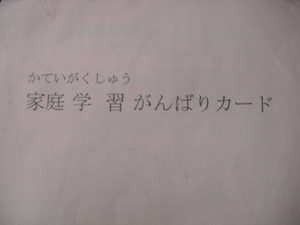 かていがくしゅう
家庭 学 習 がんばりカード